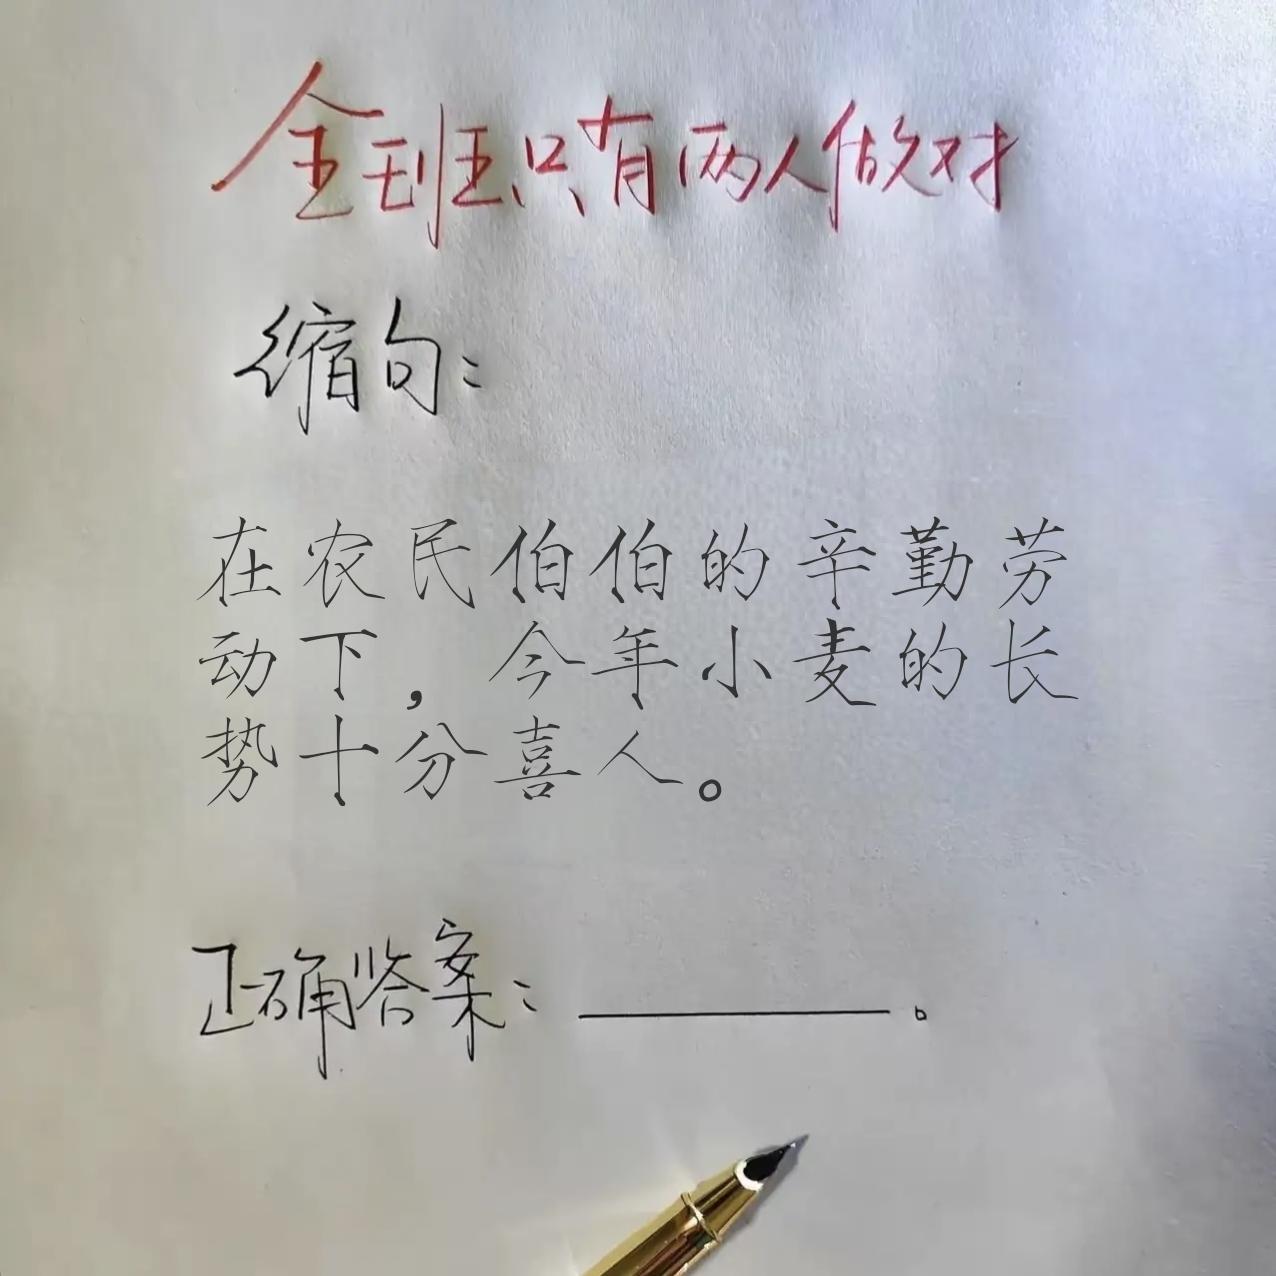 全班只有两人做对
缩句：
在农民伯伯的辛勤劳
动下，今年小麦的长
势十分喜人。
正确答案：________。